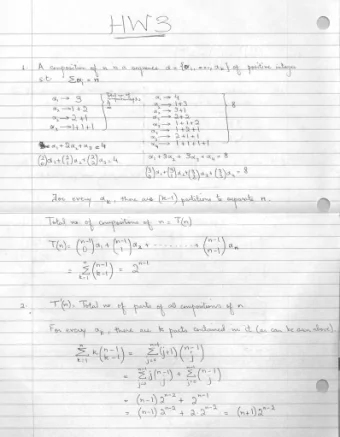 HW3
1. A composition of n is a sequence α = {α₁, ..., αₖ} of positive integer
s.t. Σαᵢ = n
α₁ → 3
α₂ → 1+2
α₂ → 2+1
α₃ → 1+1+1
α₁ → 4
→ 1+3
→ 3+1
→ 2+2
→ 1+1+2
→ 1+2+1
→ 2+1+1
→ 1+1+1+1
8
α₁+2α₂+α₃ = 4
α₁+3α₂+3α₃+α₄ = 8
For every aₖ, there are (k-1) partitions to separate n.
Total no. of compositions of n = T(n)
T(n) = (n-1 0) a₁ + (n-1 1) a₂ + ......... + (n-1 n-1) aₙ
= Σ k=1 n (n-1 k-1) = 2ⁿ⁻¹
2. T(n) = Total no of parts of all compositions of n
For every aₖ, there are k parts contained in it (as can be seen above).
Σ k=1 n k (n-1 k-1) = Σ j=0 n-1 (j+1) (n-1 j)
= Σ j=0 n-1 j (n-1 j) + Σ j=0 n-1 (n-1 j)
= (n-1) 2ⁿ⁻² + 2ⁿ⁻¹
= (n-1) 2ⁿ⁻² + 2·2ⁿ⁻² = (n+1) 2ⁿ⁻²